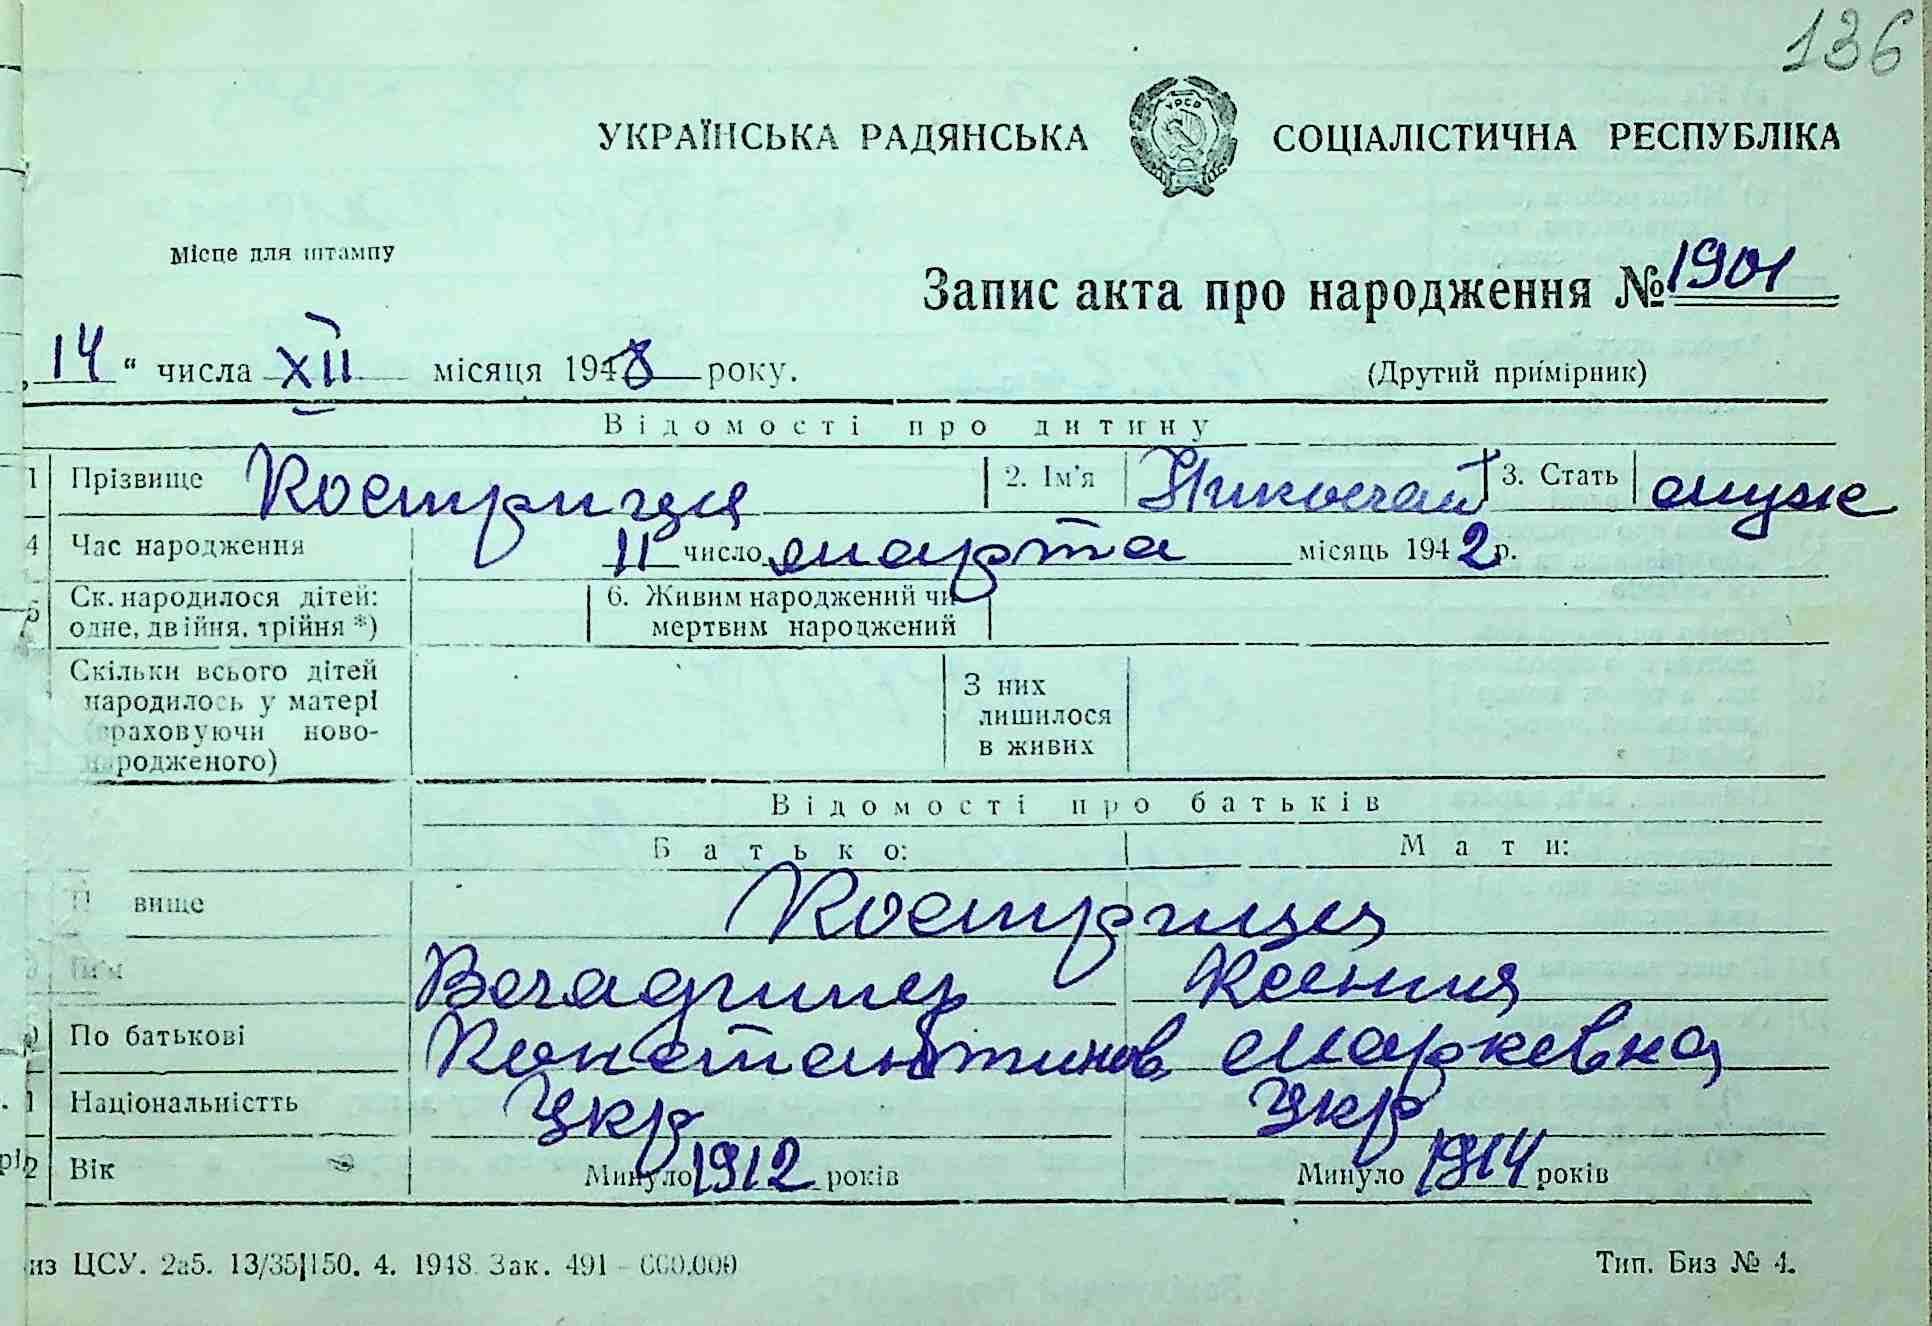 136
УКРАЇНСЬКА РАДЯНСЬКА СОЦІАЛІСТИЧНА РЕСПУБЛІКА
УРСР
Місце для штампу
Запис акта про народження № 1901
„14“ числа XII місяця 1948 року.
(Другий примірник)
Відомості про дитину
1 Прізвище Кострица 2. Ім'я Николай 3. Стать муж
4 Час народження 11 число марта місяць 1942 р.
5 Ск. народилося дітей: 6. Живим народжений чи
одне, двійня, трійня *) мертвим народжений
Скільки всього дітей
народилось у матері З них
(враховуючи ново- лишилося
народженого) в живих
Відомості про батьків
Батько: Мати:
П вище Кострица
Ім'я Владимир Ксения
По батькові Константинов Марковна
1 Національністть Укр Укр
2 Вік Минуло 1912 років Минуло 1914 років
из ЦСУ. 2а5. 13/35|150. 4. 1948. Зак. 491 - 600.000
Тип. Биз № 4.